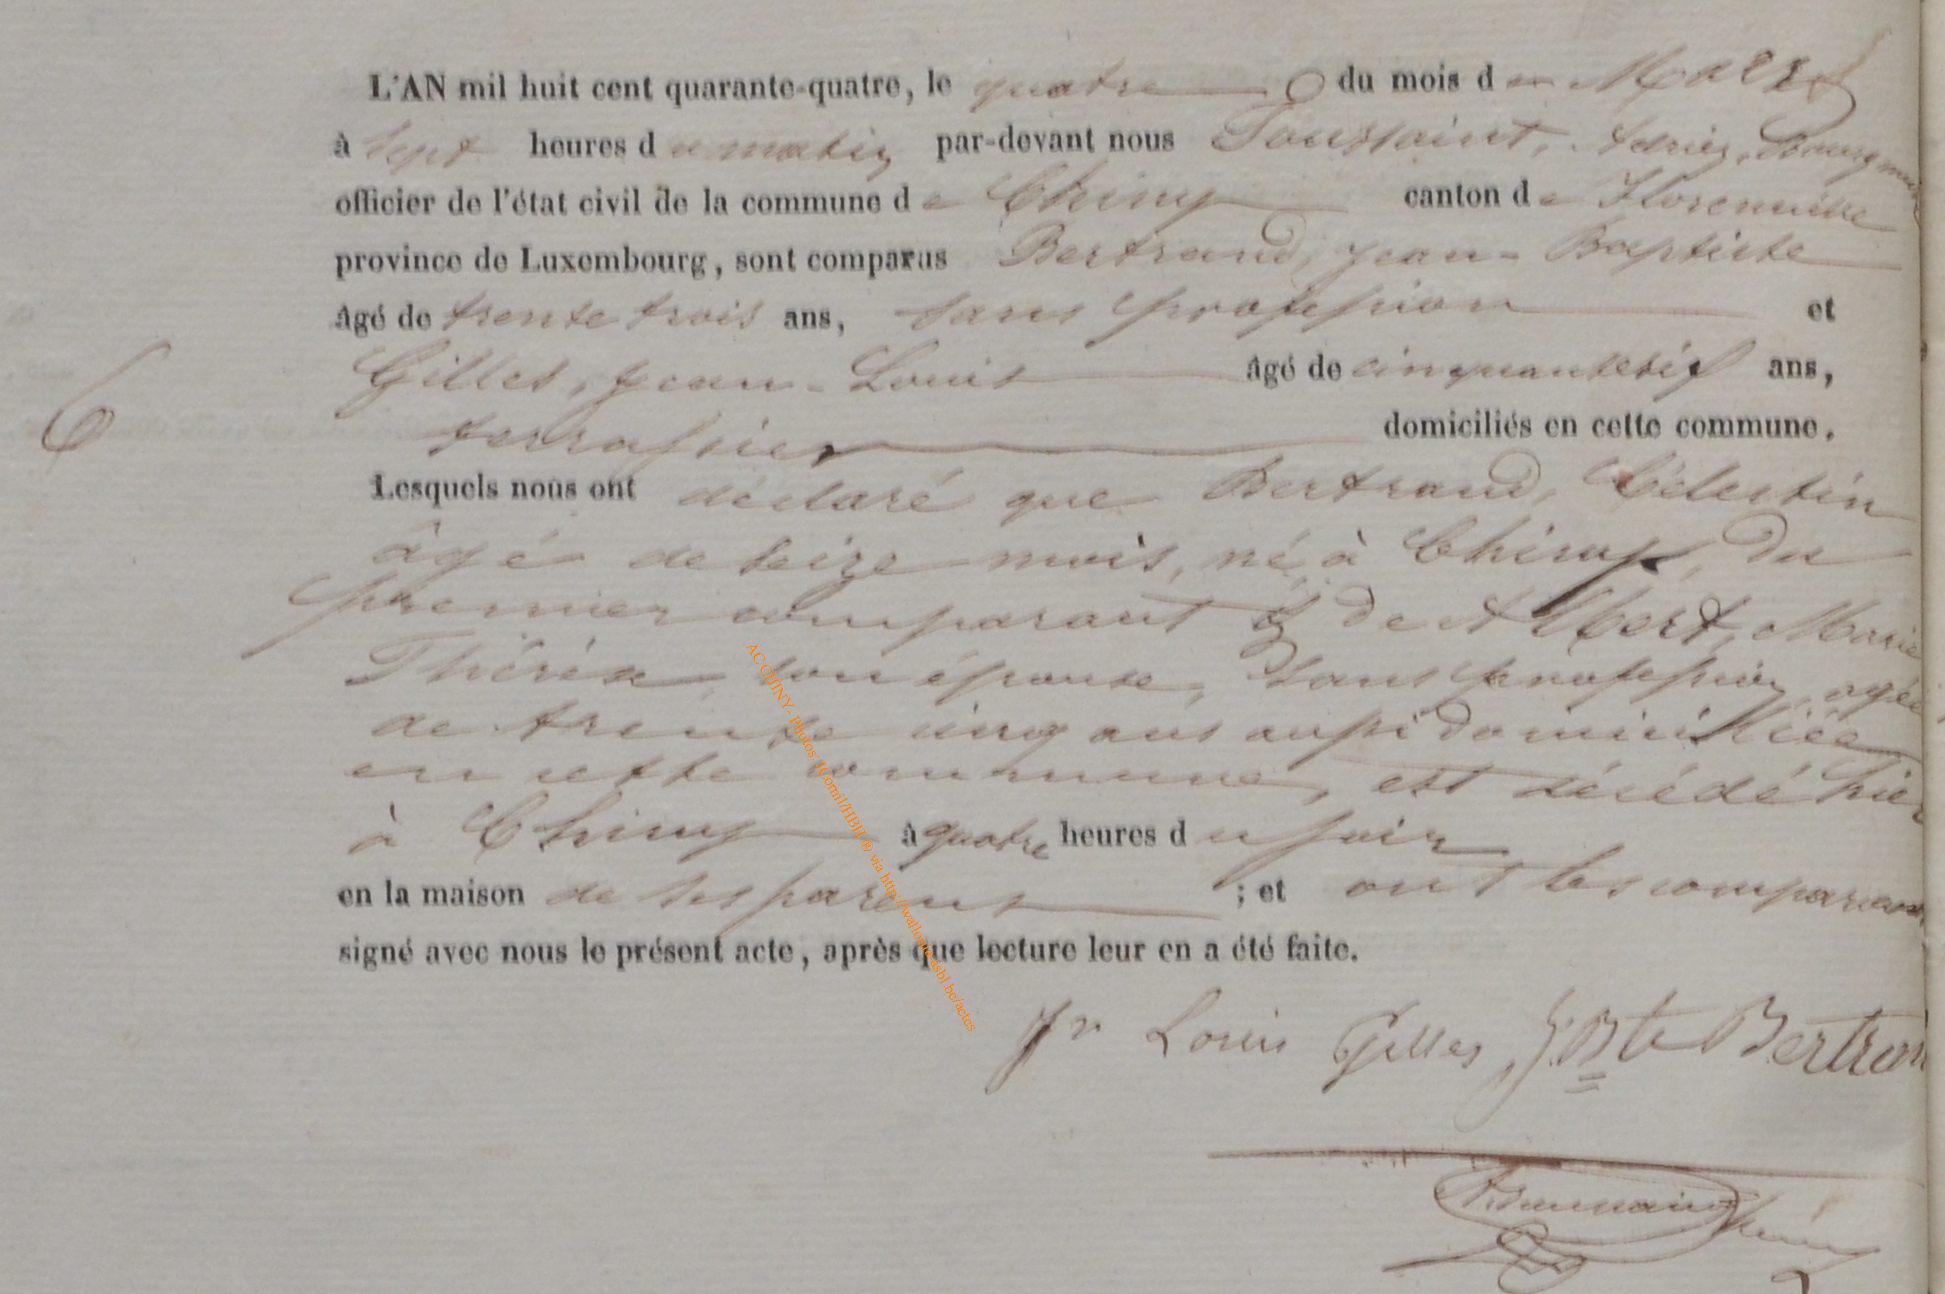 L'AN mil huit cent quarante-quatre, le quatre du mois de Mars
à sept heures du matin par-devant nous Toussaint, Adrien, Bourgmestre
officier de l'état civil de la commune de Chiny canton de Florenville
province de Luxembourg, sont comparus Bertrand, jean-Baptiste
âgé de trente trois ans, sans profession et
Gilles, jean-Louis âgé de cinquante six ans,
6
terrassier domiciliés en cette commune.
Lesquels nous ont déclaré que Bertrand, Célestin
âgé de seize mois, né à Chiny, du
premier comparant & de Albert, Marie
Thérèse, son épouse, sans profession, agée
de trente cinq ans aussi domiciliée
en cette commune, est décédé hier
à Chiny à quatre heures du soir
en la maison de ses parens ; et ont les comparans
signé avec nous le présent acte, après que lecture leur en a été faite.
AC CHINY- Photos TComil/HBH © via http://wallonia-asbl.be/actes
Jn Louis Gilles J Bte Bertrand